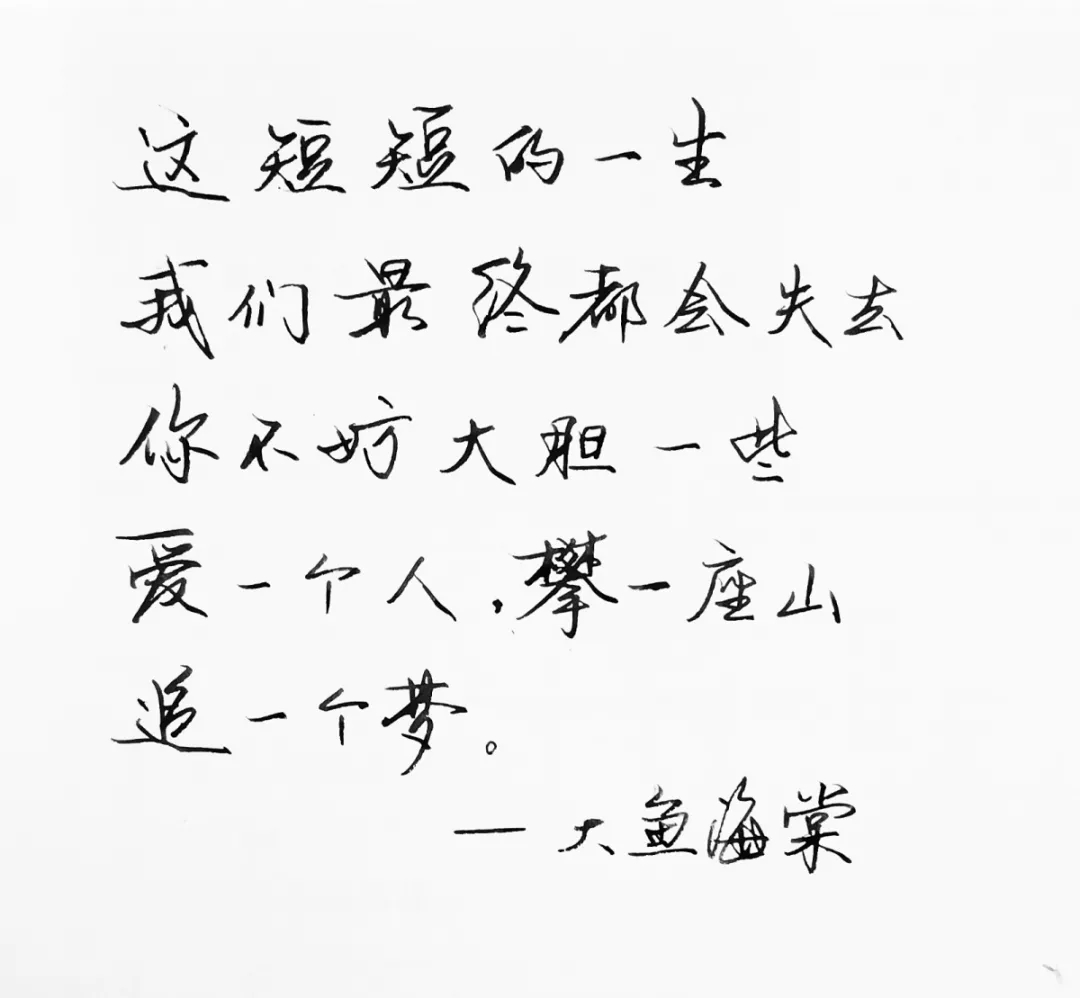 这短短的一生
我们最终都会失去
你不妨大胆一些
爱一个人,攀一座山
追一个梦。
—大鱼海棠